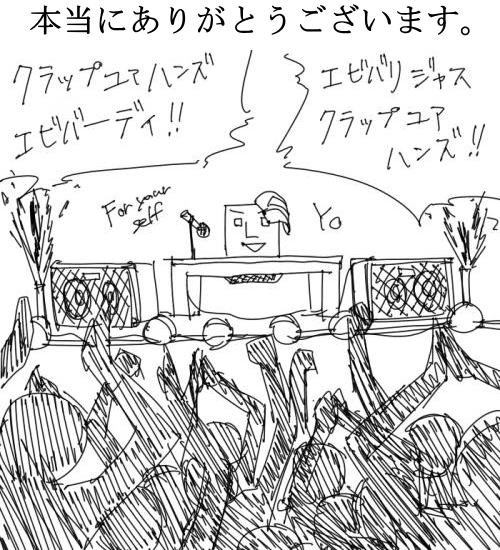 本当にありがとうございます。
クラップユアハンズ
エビバーディ!!
エビバリジャス
クラップユア
ハンズ!!
For your
self
Yo